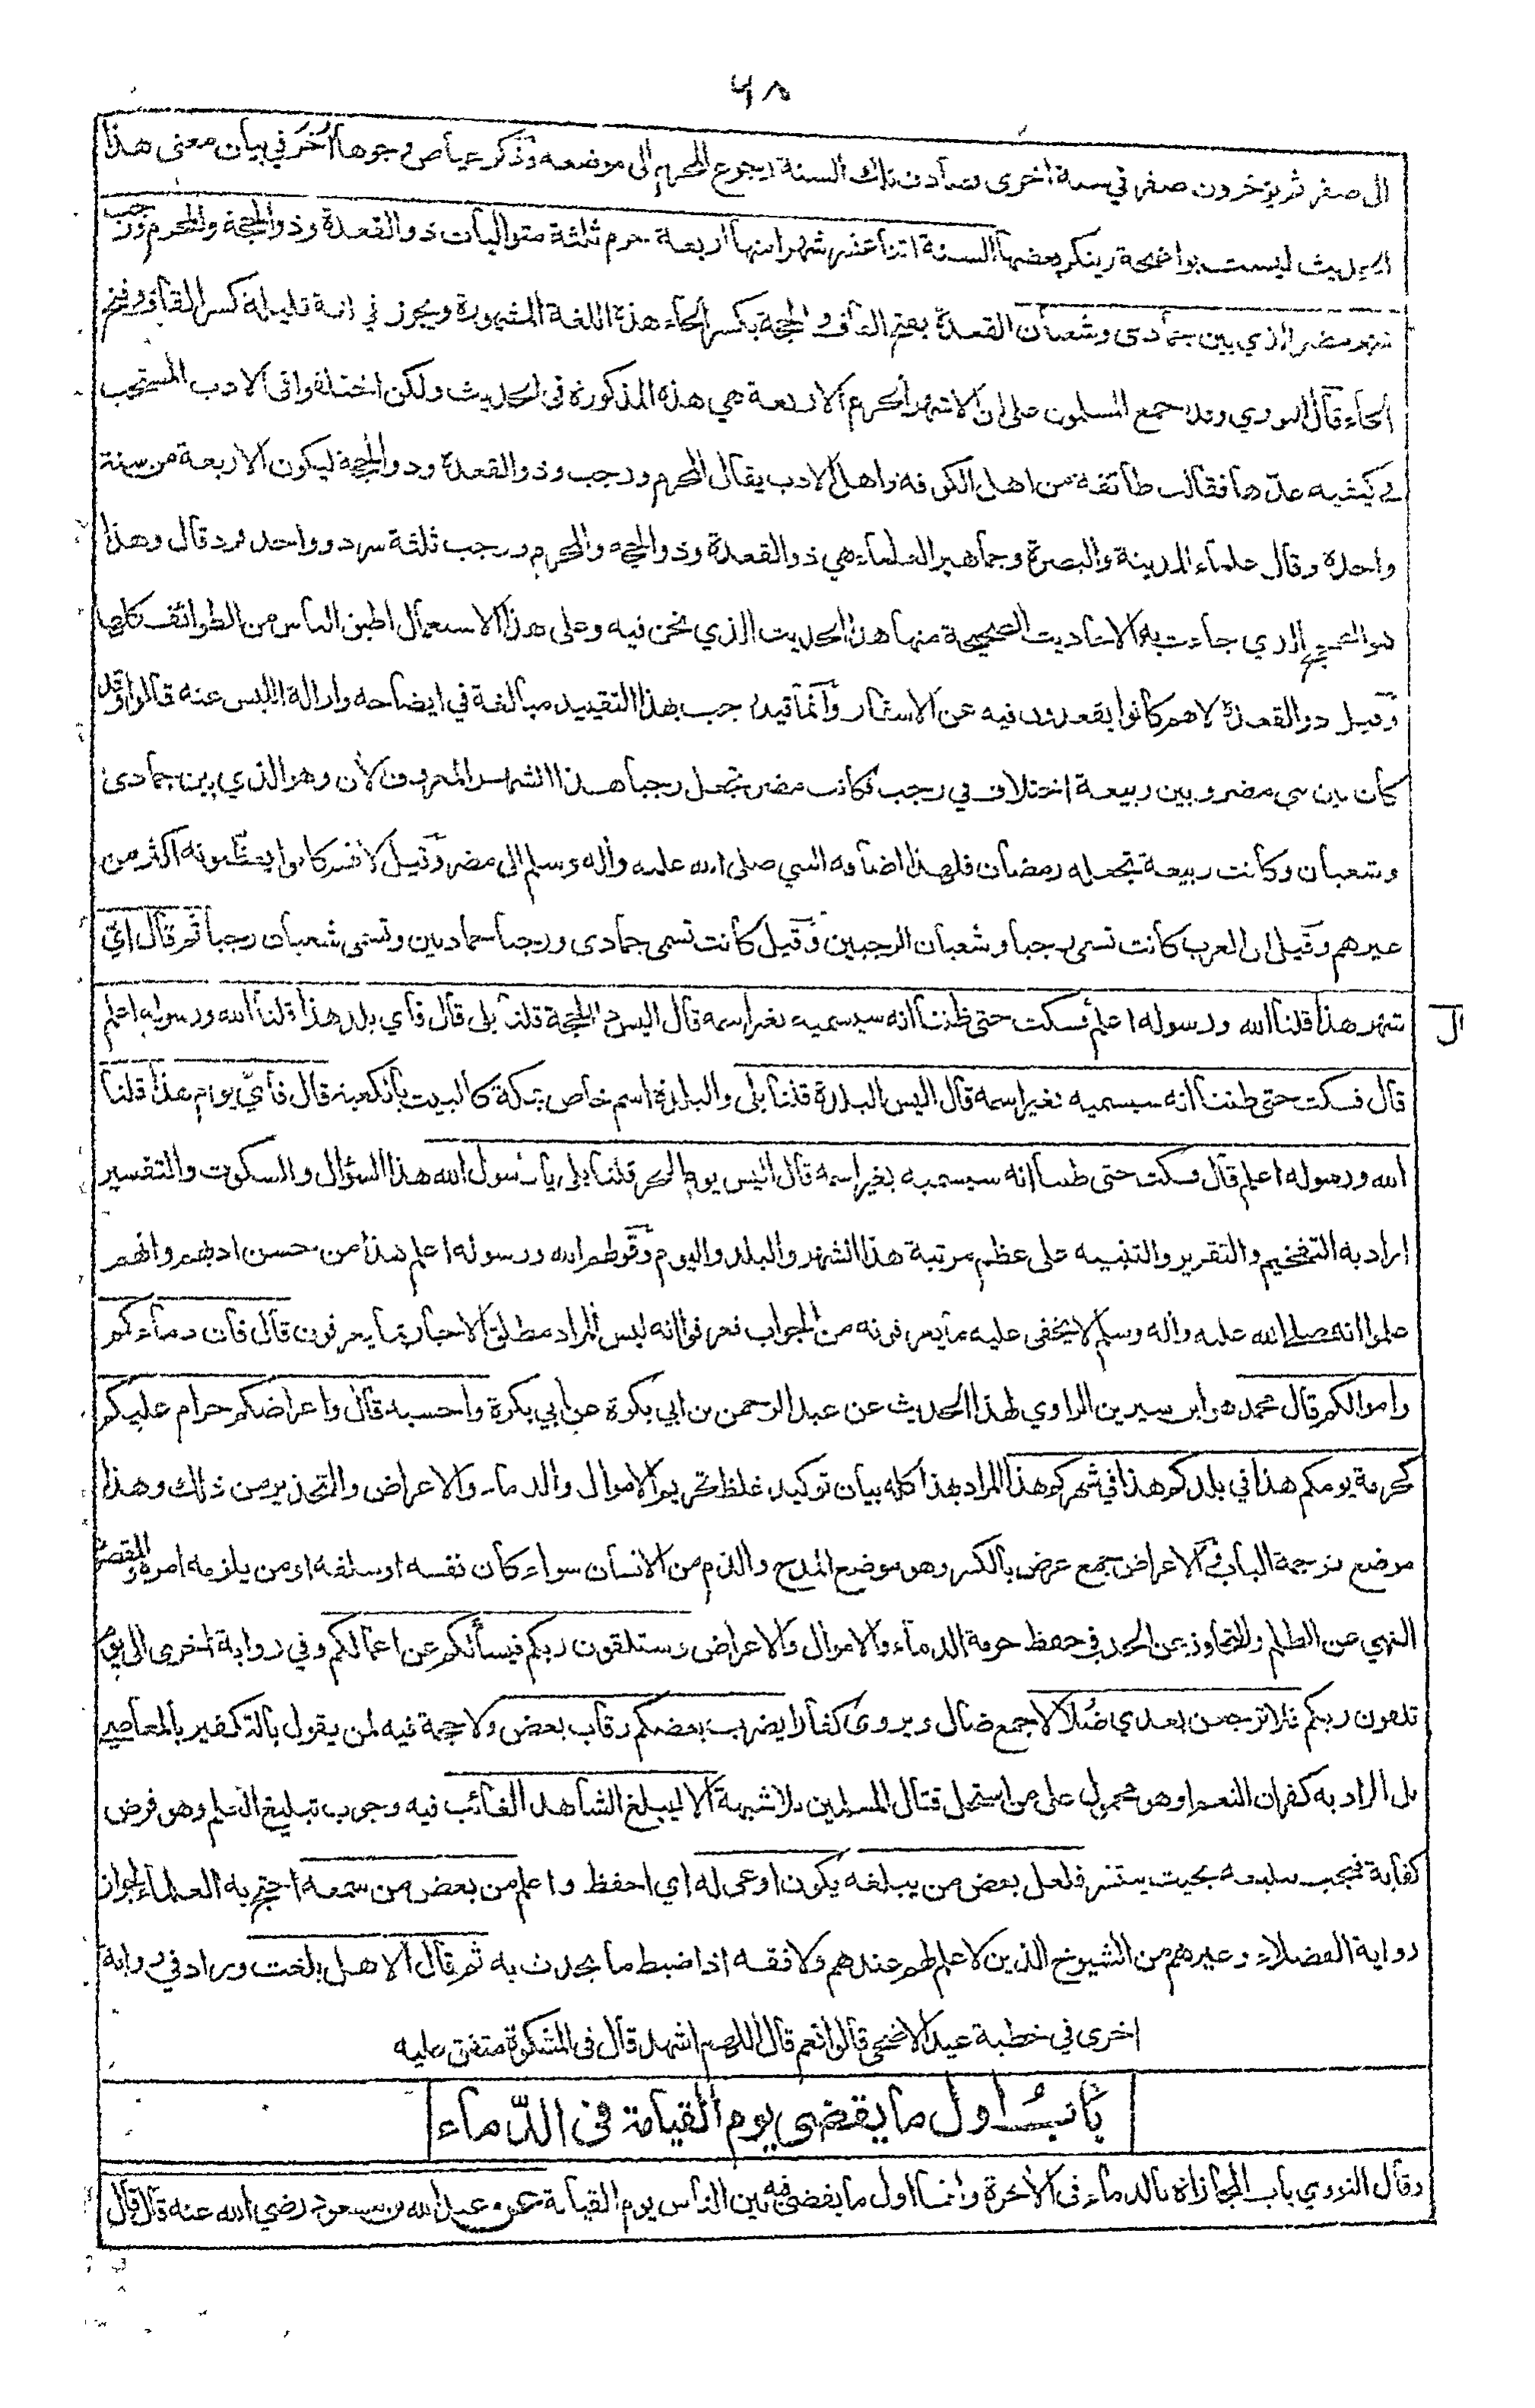 ٦٨
الى صفر ثم يؤخرون صفر في سنة اخرى فصادف تلك السنة رجوع المحرم الى موضعه وذكر عياض وجوها اُخَر في بيان معنى هذا
الحديث ليست بواضحة وينكر بعضها السنة اثنا عشر شهرا منها اربعة حرم ثلثة متواليات ذو القعدة وذو الحجة والمحرم ورجب
شهر مضر الذي بين جمادى وشعبان القعدة بفتح القاف والحجة بكسر الحاء هذه اللغة المشهورة ويجوز في لغة قليلة كسر القاف وفتح
الحاء قال النووي وقد اجمع المسلمون على ان الاشهر الحرم الاربعة هي هذه المذكورة في الحديث ولكن اختلفوا في الادب المستحب
في كيفية عدّها فقالت طائفة من اهل الكوفه واهل الادب يقال المحرم ورجب وذو القعدة وذو الحجة ليكون الاربعة من سنة
واحدة وقال علماء المدينة والبصرة وجماهير العلماء هي ذو القعدة وذو الحجه والمحرم ورجب ثلثة سرد وواحد فرد قال وهذا
هو الصحيح الذي جاءت به الاحاديث الصحيحة منها هذا الحديث الذي نحن فيه وعلى هذا الاستعمال اطبق الناس من الطوائف كلها
وقيل ذو القعدة لانهم كانوا يقعدون فيه عن الاسفار وانما قيد رجب بهذا التقييد مبالغة في ايضاحه وازالة اللبس عنه قالوا وقد
كان بين بني مضر وبين ربيعة اختلاف في رجب فكانت مضر تجعل رجبا هذا الشهر المعروف الان وهو الذي بين جمادى
وشعبان وكانت ربيعة تجعله رمضان فلهذا اضافه النبي صلى الله عليه واله وسلم الى مضر وقيل لانهم كانوا يعظمونه اكثر من
غيرهم وقيل ان العرب كانت تسمى رجبا وشعبان الرجبين وقيل كانت تسمى جمادى ورجبا جمادين وتسمى شعبان رجبا ثم قال ايّ
شهر هذا قلنا الله ورسوله اعلم فسكت حتى ظننا انه سيسميه بغير اسمه قال اليس ذا الحجة قلنا بلى قال فأي بلد هذا قلنا الله ورسوله اعلم
قال فسكت حتى ظننا انه سيسميه بغير اسمه قال اليس البلدة قلنا بلى والبلدة اسم خاص بمكة كالبيت بالكعبة قال فأيّ يوم هذا قلنا
الله ورسوله اعلم قال فسكت حتى ظننا انه سيسميه بغير اسمه قال اليس يوم النحر قلنا بلى يا رسول الله هذا السؤال والسكوت والتفسير
اراد به التفخيم والتقرير والتنبيه على عظم مرتبة هذا الشهر والبلد واليوم وقولهم الله ورسوله اعلم هذا من حسن ادبهم وانهم
علموا انه صلى الله عليه واله وسلم لا يخفى عليه ما يعرفونه من الجواب فعرفوا انه ليس المراد مطلق الاخبار بما يعرفون قال فان دماءكم
واموالكم قال محمد هو ابن سيرين الراوي لهذا الحديث عن عبد الرحمن بن ابي بكرة عن أبي بكرة واحسبه قال واعراضكم حرام عليكم
كحرمة يومكم هذا في بلدكم هذا في شهركم هذا المراد بهذا كله بيان توكيد غلظ تحريم الاموال والدماء والاعراض والتحذير من ذلك وهذا
موضع ترجمة الباب في الاعراض جمع عرض بالكسر وهو موضع المدح والذم من الانسان سواء كان نفسه او سلفه او من يلزمه امره والمقصود
النهي عن الظلم والتجاوز عن الحد في حفظ حرمة الدماء والاموال والاعراض وستلقون ربكم فيسألكم عن اعمالكم وفي رواية اخرى الى يوم
تلقون ربكم فلا ترجعن بعدي ضُلّالا جمع ضال ويروى كفارا يضرب بعضكم رقاب بعض ولا حجة فيه لمن يقول بالتكفير بالمعاصي
بل المراد به كفران النعم او هو محمول على من استحل قتال المسلمين بلا شبهة الا ليبلغ الشاهد الغائب فيه وجوب تبليغ العلم وهو فرض
كفاية فيجب تبليغه بحيث ينتشر فلعل بعض من يبلغه يكون اوعى له اي احفظ واعلم من بعض من سمعه احتج به العلماء لجواز
رواية الفضلاء وغيرهم من الشيوخ الذين لا علم لهم عندهم ولا فقه اذا ضبط ما يحدث به ثم قال الا هل بلغت وزاد في رواية
اخرى في خطبة عيد الاضحى قالوا نعم قال اللهم اشهد قال في المشكوة متفق عليه
بابُ اول ما يقضى يوم القيامة في الدّماء
وقال النووي باب المجازاة بالدماء في الآخرة وانها اول ما يقضى فيه بين الناس يوم القيامة عن عبد الله بن مسعود رضي الله عنه قال قال